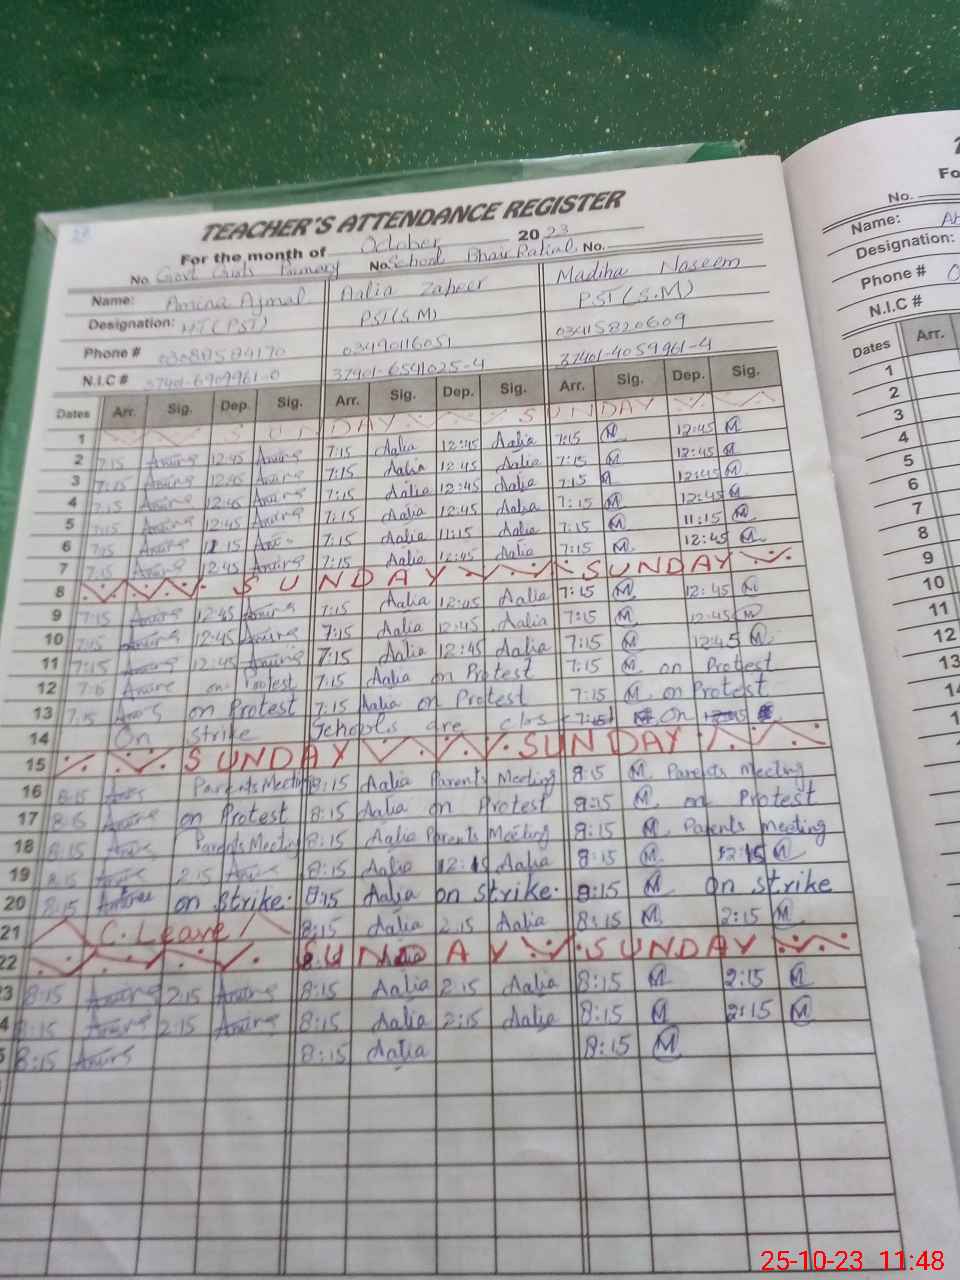 TEACHER'S ATTENDANCE REGISTER
For the month of October 2023
No. Govt Girls Primary No. School Bhair Ratial No.
Name: Amina Ajmal Aalia Zaheer Madiha Naseem
Designation: HT (PST) PST (S.M) PST (S.M)
Phone # 03490116051 03415820609
N.I.C # 37401-6909961-0 37401-6541025-4 37401-4059961-4
Dates Arr. Sig. Dep. Sig. Arr. Sig. Dep. Sig. Arr. Sig. Dep. Sig.
1 SUNDAY SUNDAY
2 7:15 12:45 7:15 Aalia 12:45 Aalia 7:15 M 12:45 M
3 7:15 12:45 7:15 Aalia 12:45 Aalia 7:15 M 12:45 M
4 7:15 12:45 7:15 Aalia 12:45 Aalia 7:15 M 12:45 M
5 7:15 12:45 7:15 Aalia 12:45 Aalia 7:15 M 12:45 M
6 7:15 11 15 7:15 Aalia 11:15 Aalia 7:15 M 11:15 M
7 7:15 12:45 7:15 Aalia 12:45 Aalia 7:15 M 12:45 M
8 SUNDAY SUNDAY
9 7:15 12:45 7:15 Aalia 12:45 Aalia 7:15 M 12:45 M
10 7:15 12:45 7:15 Aalia 12:45 Aalia 7:15 M 12:45 M
11 7:15 12:45 7:15 Aalia 12:45 Aalia 7:15 M 12:45 M
12 7:15 on Protest 7:15 Aalia on Protest 7:15 M on Protest
13 7:15 on Protest 7:15 Aalia on Protest 7:15 M on Protest
14 On Strike Schools are clos 7:15 On
15 SUNDAY SUNDAY
16 8:15 Parents Meeting 8:15 Aalia Parents Meeting 8:15 M Parents Meeting
17 8:15 on Protest 8:15 Aalia on Protest 8:15 M on Protest
18 8:15 Parents Meeting 8:15 Aalia Parents Meeting 8:15 M Parents meeting
19 8:15 2:15 8:15 Aalia 12:15 Aalia 8:15 M 12:15 M
20 8:15 on Strike. 8:15 Aalia on Strike. 8:15 M on Strike
21 C. Leave 8:15 Aalia 2:15 Aalia 8:15 M 2:15 M
22 SUNDAY SUNDAY
3 8:15 2:15 8:15 Aalia 2:15 Aalia 8:15 M 2:15 M
4 8:15 2:15 8:15 Aalia 2:15 Aalia 8:15 M 2:15 M
5 8:15 8:15 Aalia 8:15 M
Fo
No.
Name:
Designation:
Phone # 0
N.I.C #
Dates Arr.
1
2
3
4
5
6
7
8
9
10
11
12
13
25-10-23 11:48